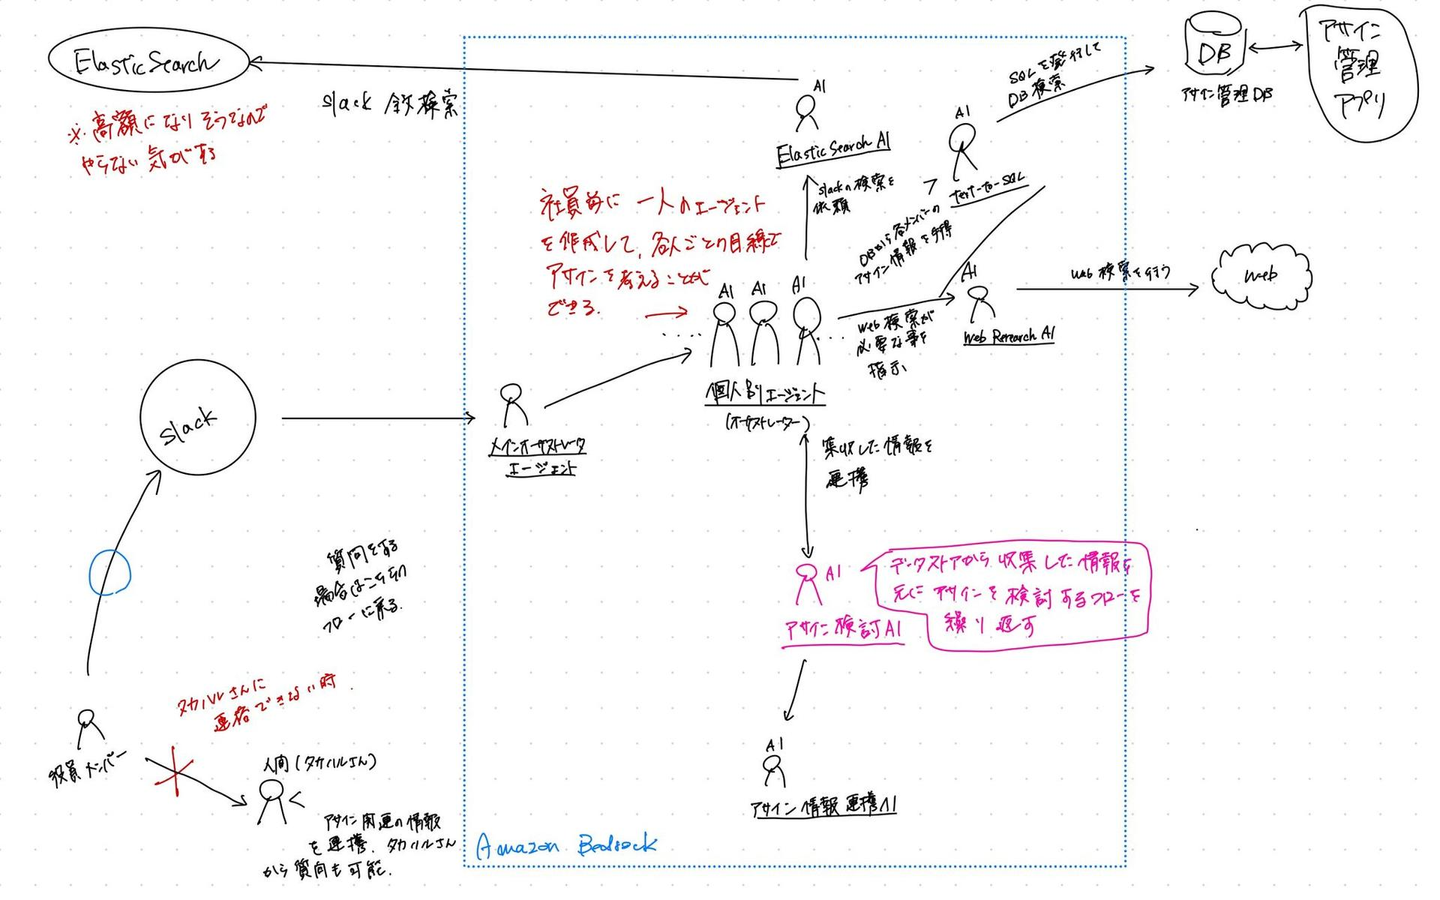 ElasticSearch
※ 高額になりそうなので
やらない気がする
slack 全検索
AI
ElasticSearch AI
slackの検索を
依頼
SQLを発行して
DB検索
AI
text-to-SQL
DB
アサイン管理DB
アサイン
管理
アプリ
社員毎に 一人のエージェント
を作成して、各人ごとの目線で
アサインを考えることが
できる.
DBから各メンバーの
アサイン情報を取得
AI
AI
AI
個人別エージェント
(オーケストレーター)
web検索が
必要な事を
指示
AI
Web Research AI
web検索を行う
web
slack
メインオーケストレータ
エージェント
集収した情報を
連携
質問をする
場合はこちらの
フローに乗る.
AI
アサイン検討AI
データストアから 収集した情報を
元に アサインを検討するフローを
繰り返す
タカハルさんに
連絡できない時.
役員メンバー
人間(タカハルさん)
アサイン関連の情報
を連携. タカハルさん
から質問も可能.
AI
アサイン情報連携AI
Amazon Bedrock